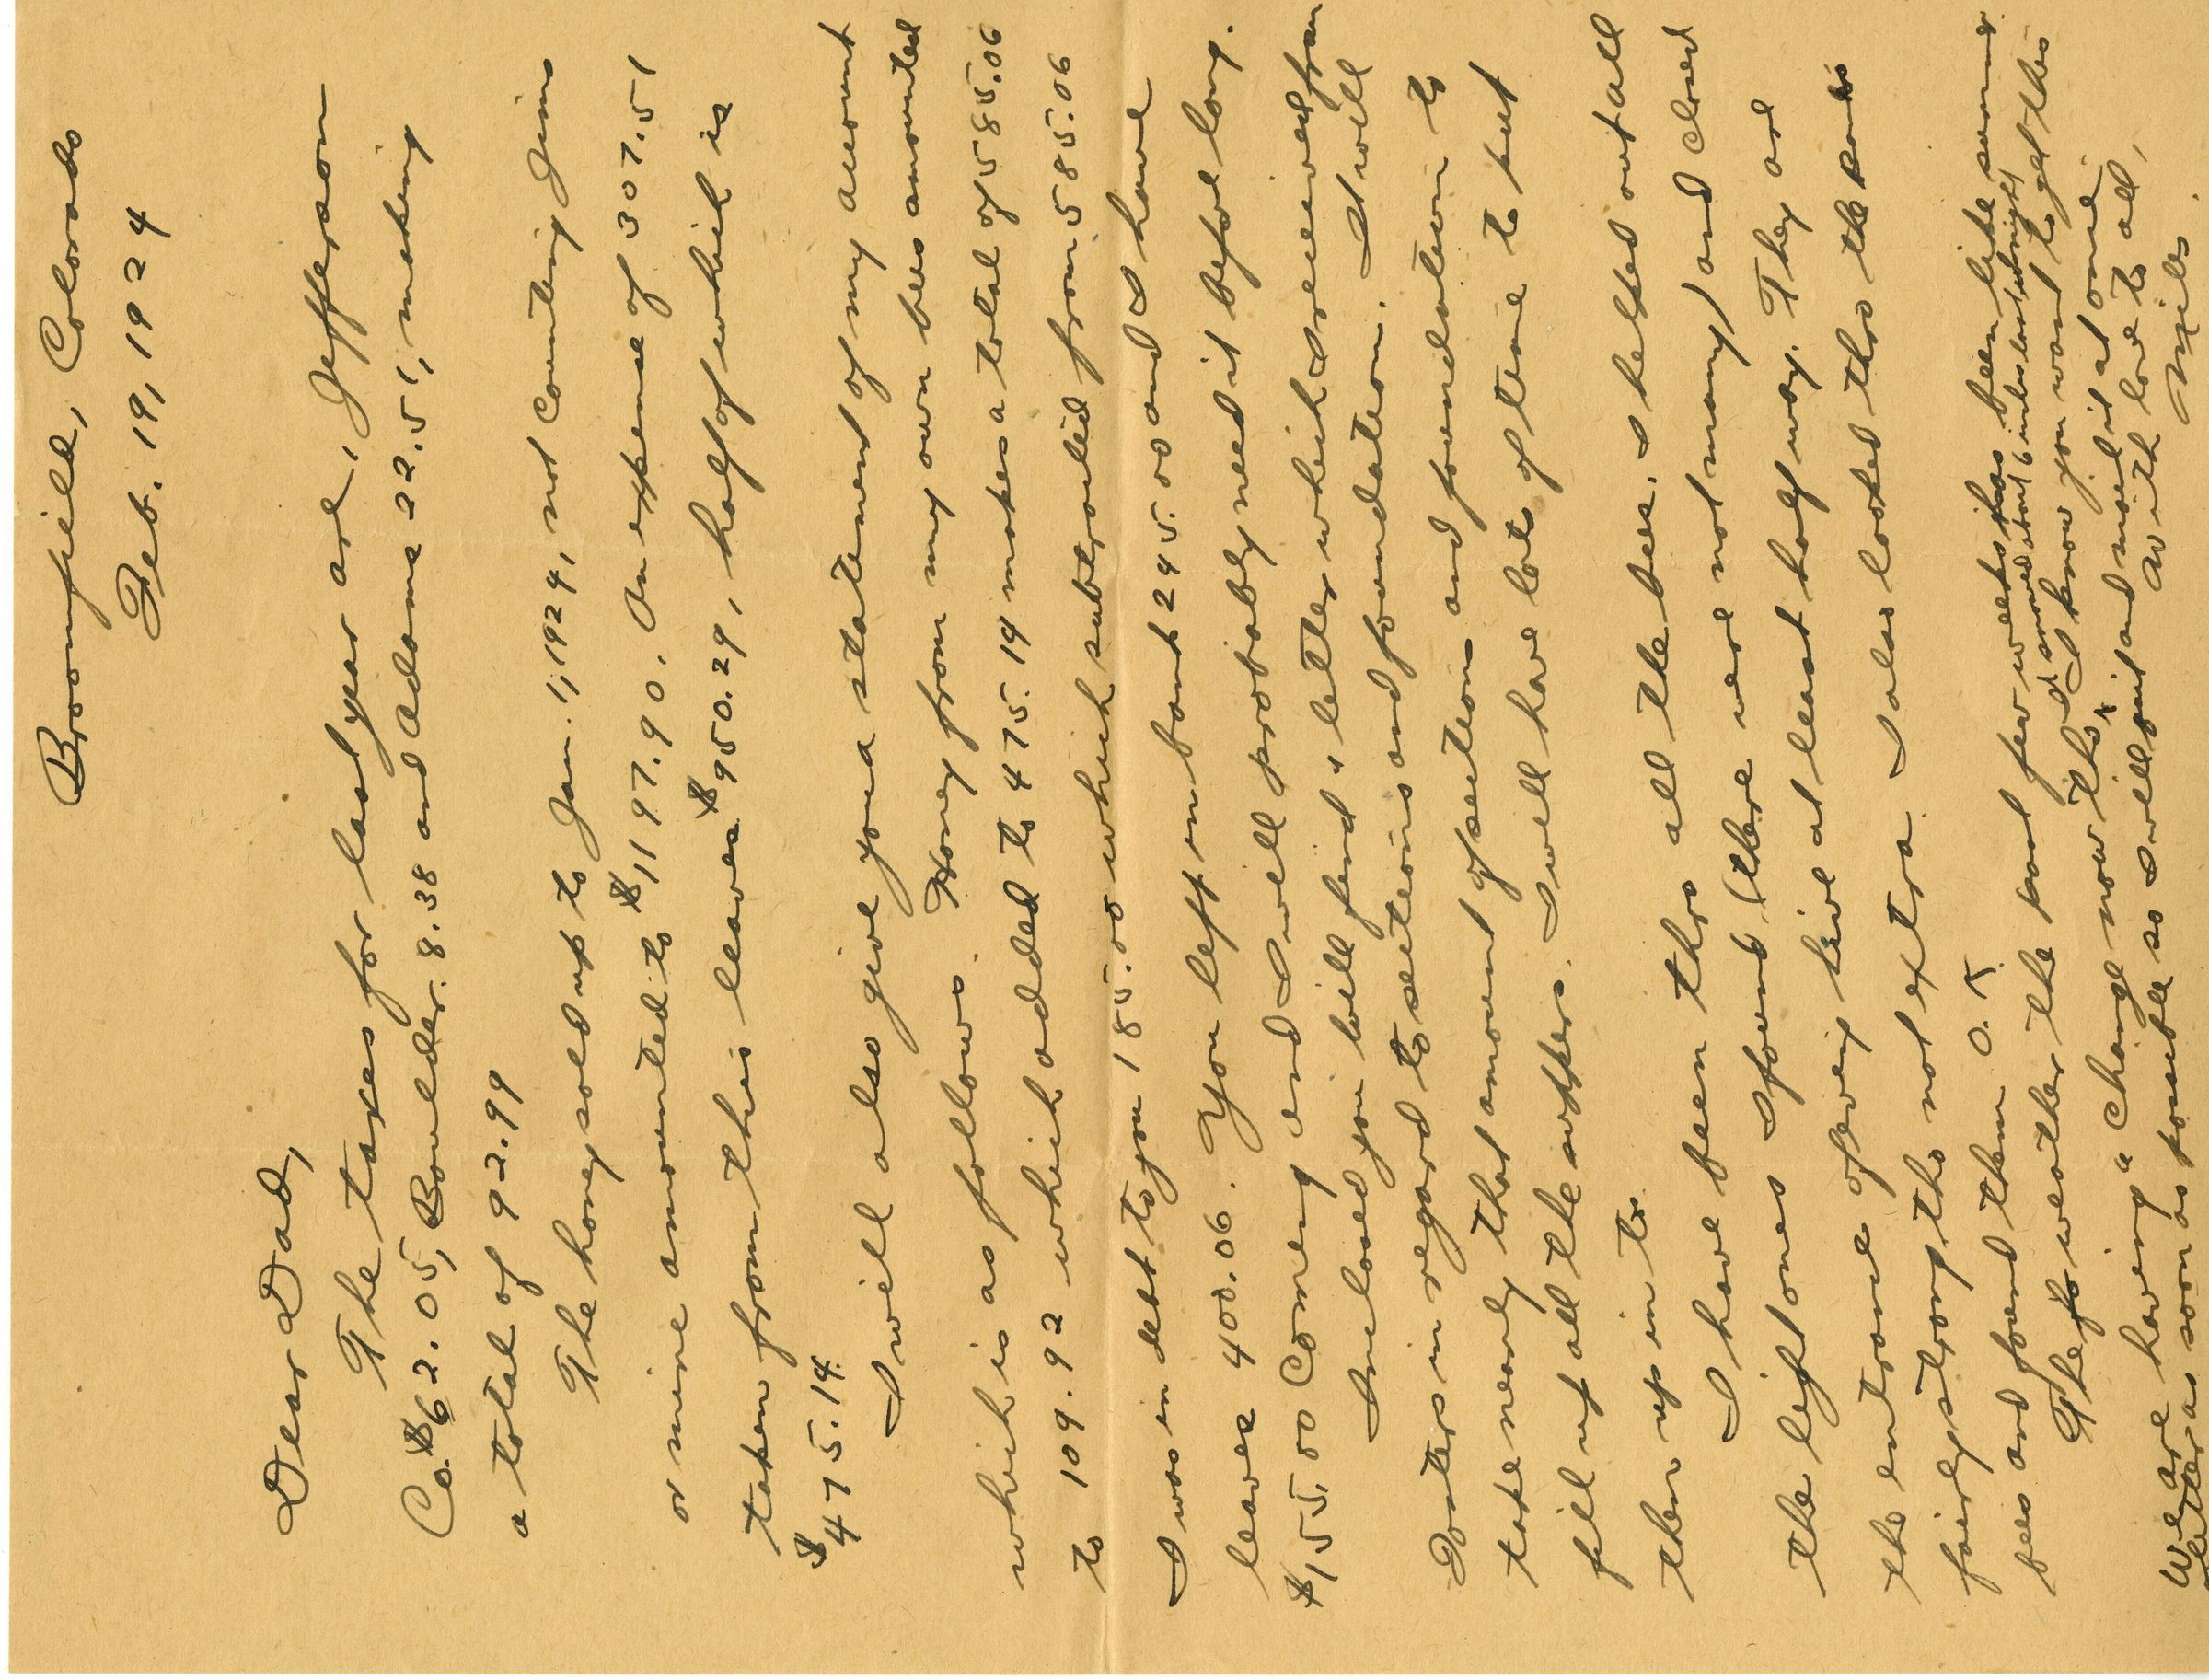 Broomfield, Colorado
Feb. 19, 1924
Dear Dad,
The taxes for last year are, Jefferson
Co. $62.05, Boulder. 8.38 and Adams 22.51, making
a total of 92.99
The honey sold up to Jan. 1, 1924, not counting Jims
or mine amounted to $1197.90. An expense of 307.51
taken from this leaves $950.29, half of which is
$475.14.
I will also give you a statement of my account
which is as follows. Honey from my own bees amounted
to 109.92 which added to 475.14 makes a total of 585.06
I was in debt to you 185.00 which subtracted from 585.06
leaves 400.06. You left in bank 245.00 and I have
$155.00 coming and I will probably need it before long.
Inclosed you will find a letter which I received from
Foster in regard to sections and foundation. I will
take nearly that amount of sections and foundation to
fill up all the supers. I will have lots of time to put
them up in to.
I have been thro all the bees. I helped out all
the light ones I found, (there were not many) and closed
the entrance of every hive at least half way. They are
fairly strong tho not extra. I also looked thro the
bees and found them O.K.
The weather the past few weeks has been like summer
We are having a change now tho, it snowed about 6 inches last night I know you want to get this
letter as soon as possible so I will quit and mail it at once
With love to all,
Miles.